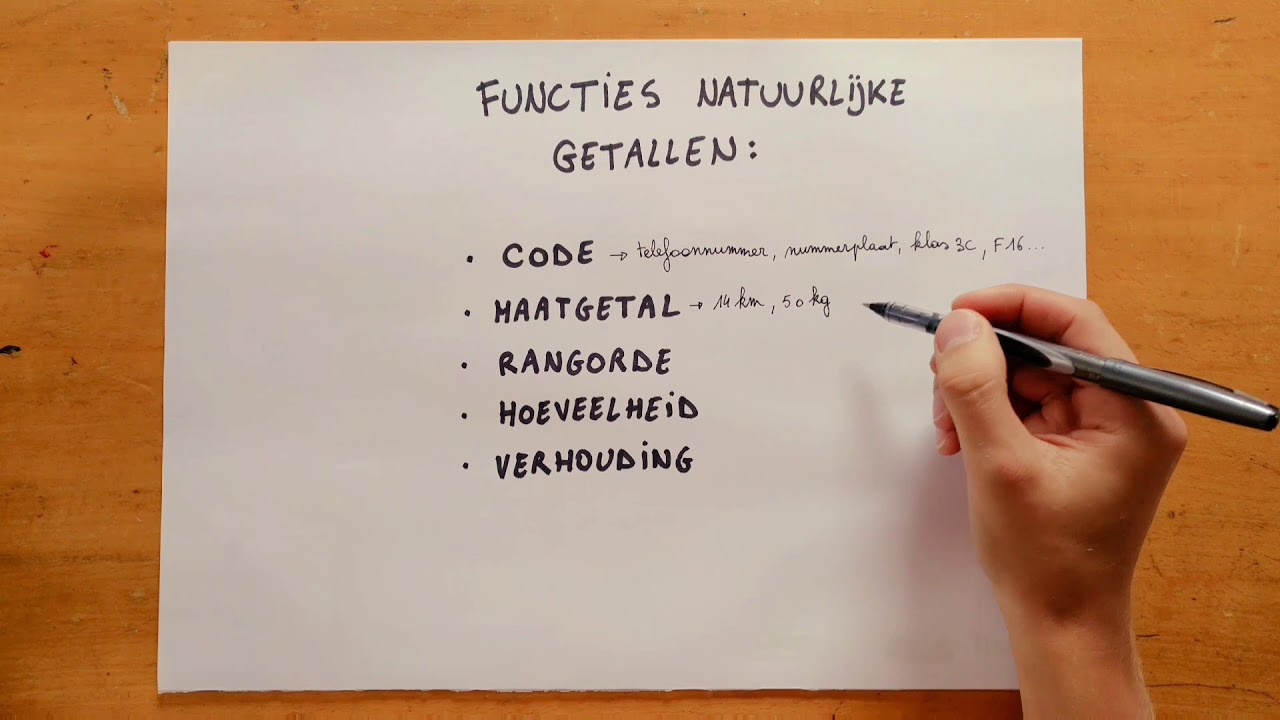 FUNCTIES NATUURLIJKE
GETALLEN:
• CODE → telefoonnummer, nummerplaat, klas 3C, F16...
• MAATGETAL → 14 km, 50 kg
• RANGORDE
• HOEVEELHEID
• VERHOUDING